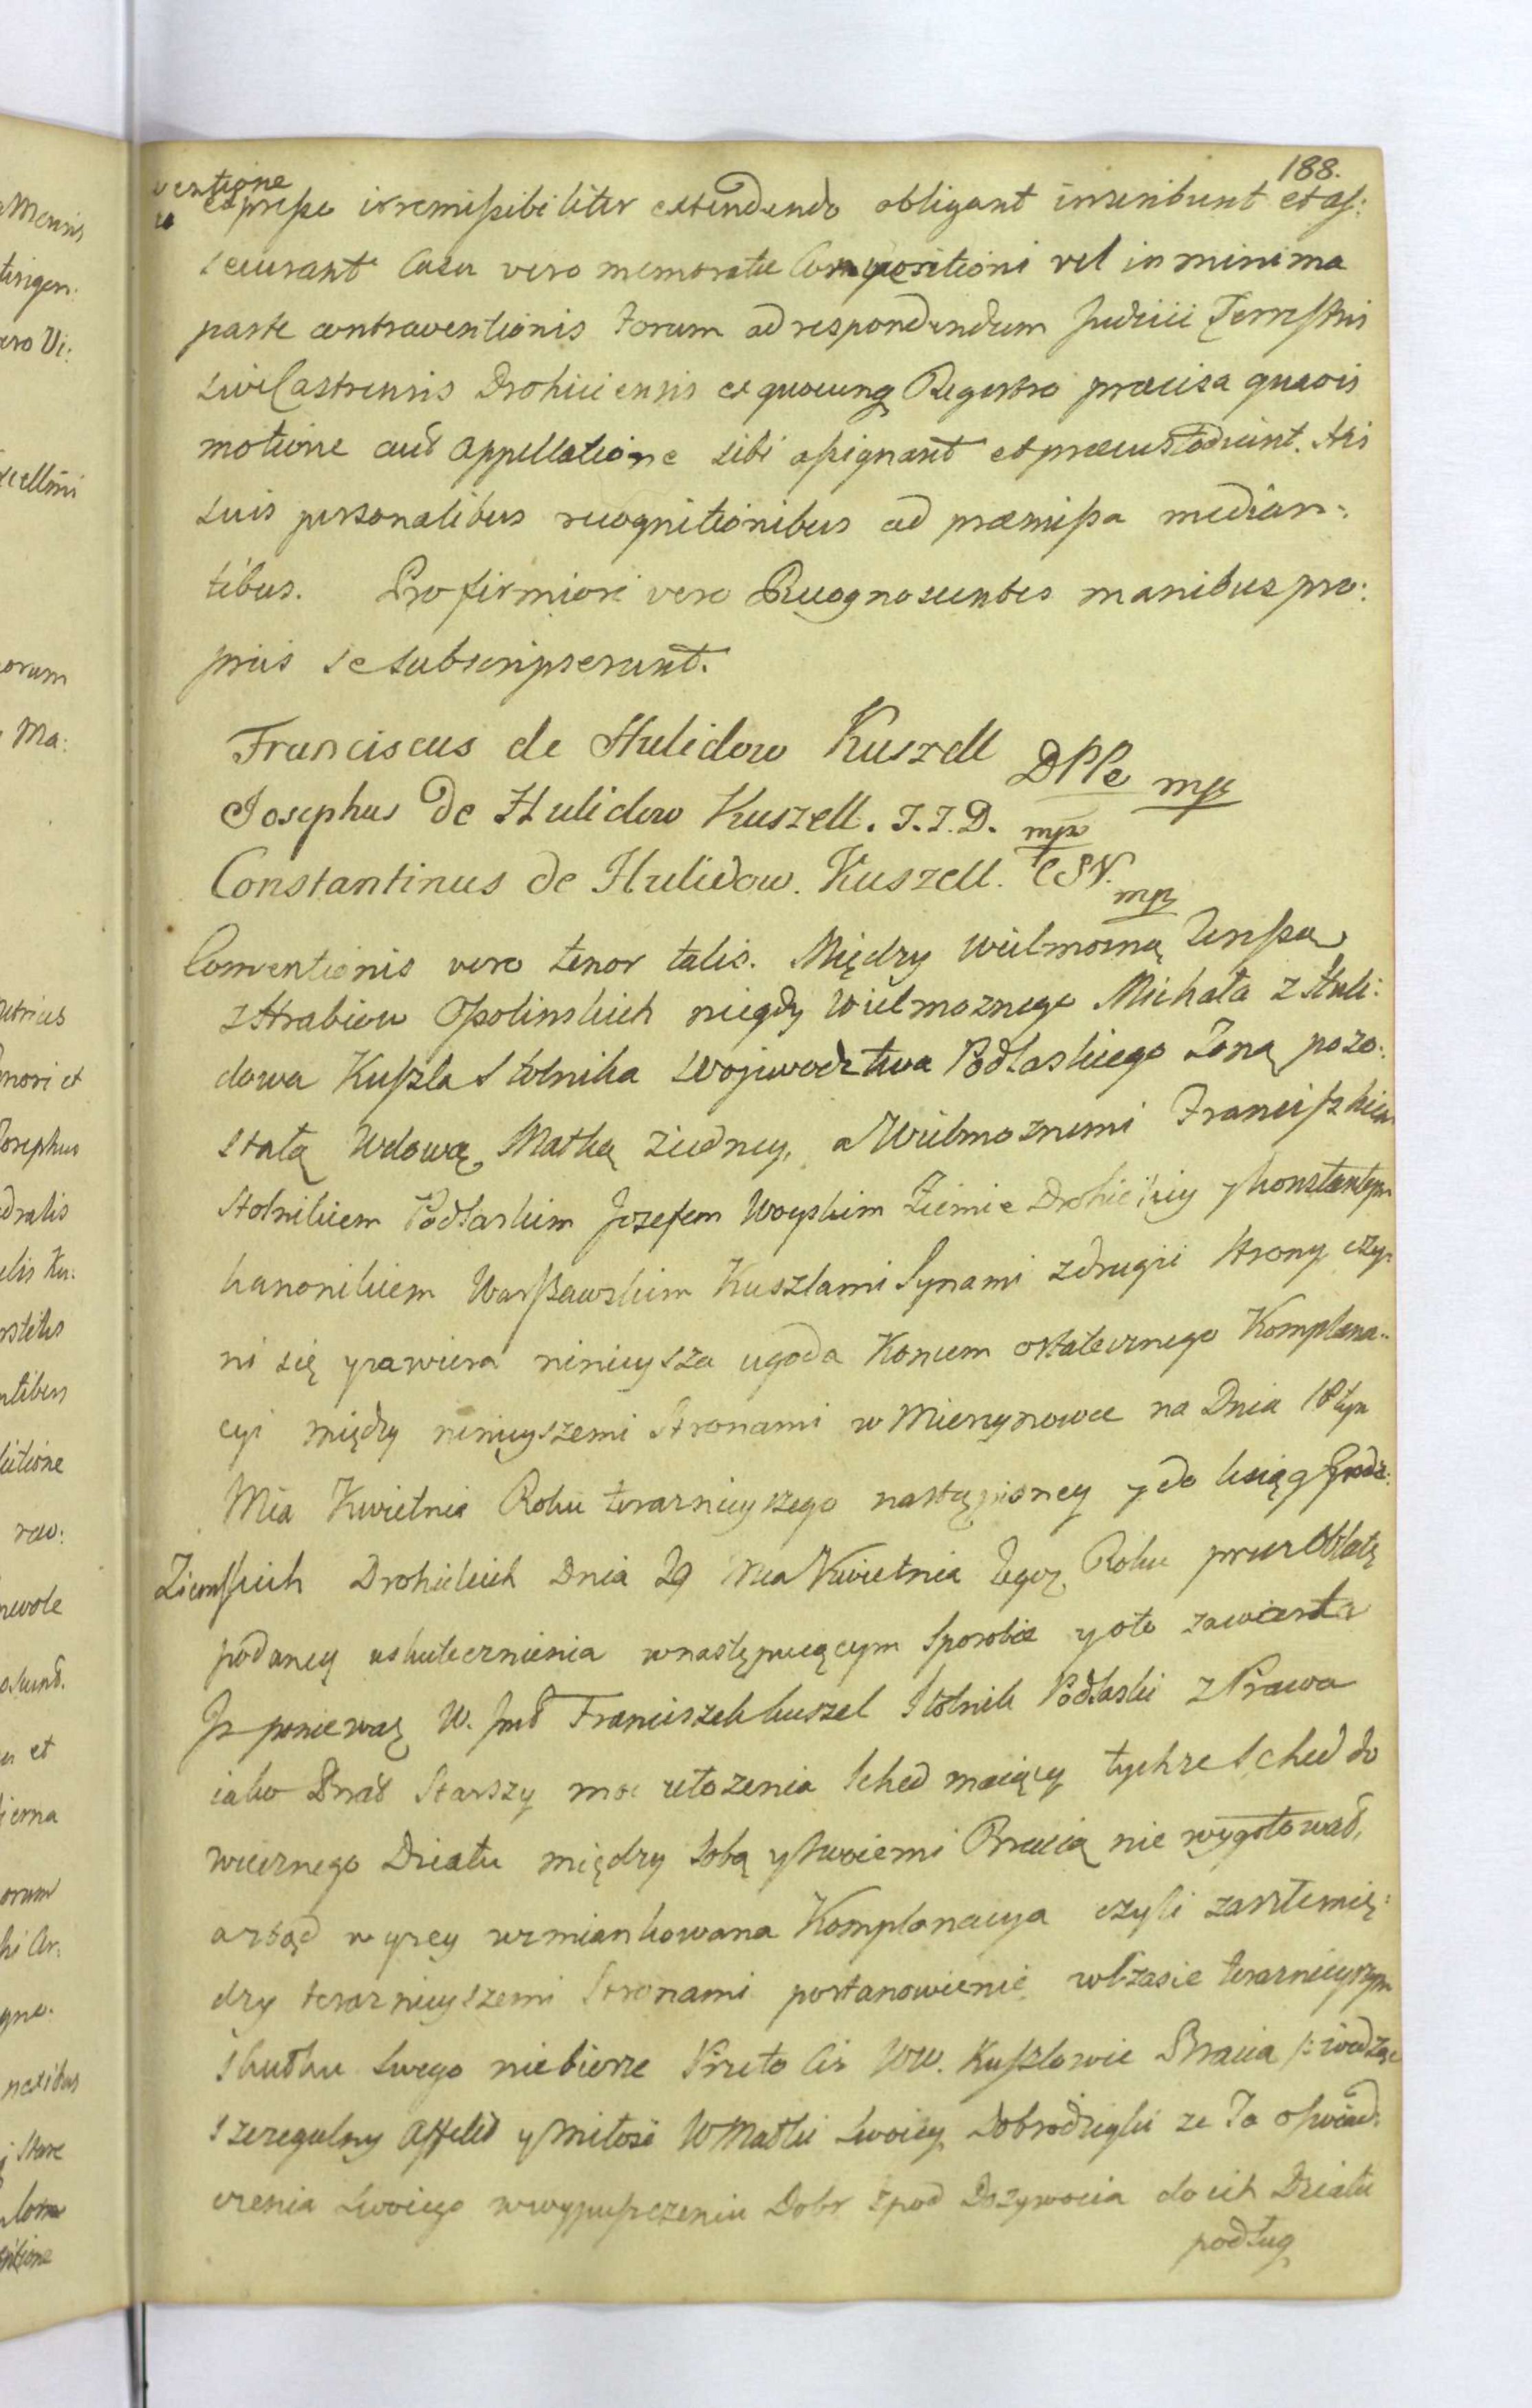 188.
ventione
expresse irremissibiliter extendendo obligant inscribunt et as:
securant Casu vero memoratae Compositioni vel in minima
parte contraventionis Forum ad respondendum Judicii Terrestris
sive Castrensis Drohiciensis ex quocunq Regestro praecisa quavis
motione aut appellatione sibi assignant et praecustodiunt. His
suis personalibus recognitionibus ad praemissa median:
tibus. Pro firmiori vero Recognoscentes manibus pro:
priis se subscripserunt.
Franciscus de Hulidow Kuszell DPPe mp
Josephus De Hulidow Kuszell. T.T.D. mp
Constantinus de Hulidow. Kuszell. CSV. mp
Conventionis vero tenor talis. Między Wielmożną Teressą
z Hrabiow Ossolinskich niegdy Wielmoznego Michała z Huli:
dowa Kuszla Stolnika Wojewodztwa Podlaskiego Zoną pozo:
stałą Wdową, Matką z iedney, a Wielmoznemi Franciszkiem
Stolnikiem Podlaskim Jozefem Woyskim Ziemie Drohickiey y Konstantym
Kanonikiem Warszawskim Kuszlami Synami z drugiei Strony czy:
ni się y zawiera ninieysza ugoda Koncem ostatecznego Komplana:
cyi między ninieyszemi Stronami w Mierzynowce na Dniu 18tym
Mca Kwietnia Roku teraznieyszego nastąpioney y do ksiąg Grodz:
Ziemskich Drohickich Dnia 29 Mca Kwietnia Tegoż Roku przez Oblatę
podaney uskutecznienia w następuiącym Sposobie y oto zawiarta
Jz poniewaz W. Jmć Franciszek Kuszel Stolnik Podlaski z Prawa
iako Brat Starszy moc ułozenia Sched maiący tychze Sched do
wiecznego Działu między Sobą y Swoiemi Bracią nie wygotował,
a ztąd wyzey wzmiankowana Komplanacya czyli zaszłe mię:
dzy teraznieyszemi Stronami postanowienie w Czasie teraznieyszym
Skutku Swego niebierze Przeto Ciz WW. Kuszlowie Bracia /: widząc
Szeregulny Affekt y Miłość W Matki Swoiey Dobrodzieyki ze Ta oswiad:
czenia Swoiego w wypuszczeniu Dobr z pod Dozywocia do ich Działu
podług